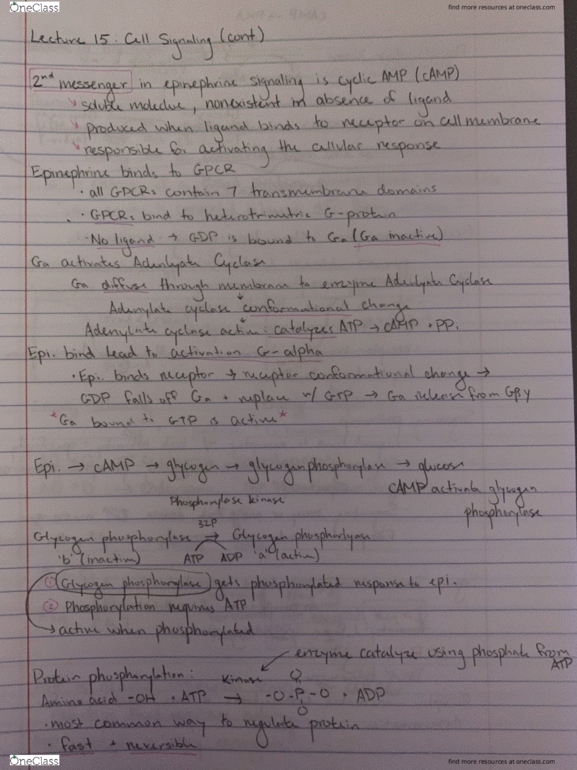 OneClass
find more resources at oneclass.com
Lecture 15: Cell Signaling (cont)
2nd messenger in epinephrine signaling is cyclic AMP (cAMP)
soluble molecule, nonexistent in absence of ligand
produced when ligand binds to receptor on cell membrane
responsible for activating the cellular response
Epinephrine binds to GPCR
· all GPCRs contain 7 transmembrane domains
· GPCRs bind to heterotrimetric G-protein
· No ligand → GDP is bound to Gα (Gα inactive)
Gα activates Adenlyate Cyclase
Gα diffuse through membrane to enzyme Adenlyate Cyclase
Adenylate cyclase conformational change
Adenylate cyclase active: catalyzes ATP → cAMP + PPi
Epi. bind lead to activation G-alpha
· Epi. binds receptor → receptor conformational change →
GDP falls off Gα + replace w/ GTP → Gα release from Gβγ
*Gα bound to GTP is active*
Epi. → cAMP → glycogen → glycogen phosphorylase → glucose
cAMP activate glycogen
phosphorylase
Phosphorylase kinase
32P
Glycogen phosphorylase → Glycogen phosphorlyase
'b' (inactive) ATP ADP 'a' (active)
① Glycogen phosphorylase gets phosphorylated response to epi.
② Phosphorylation requires ATP
→ active when phosphorylated
enzyme catalyze using phosphate from
ATP
Protein phosphorylation: kinase O
Amino acid -OH + ATP → -O-P-O + ADP
O
· most common way to regulate protein
· fast + reversible
OneClass
find more resources at oneclass.com